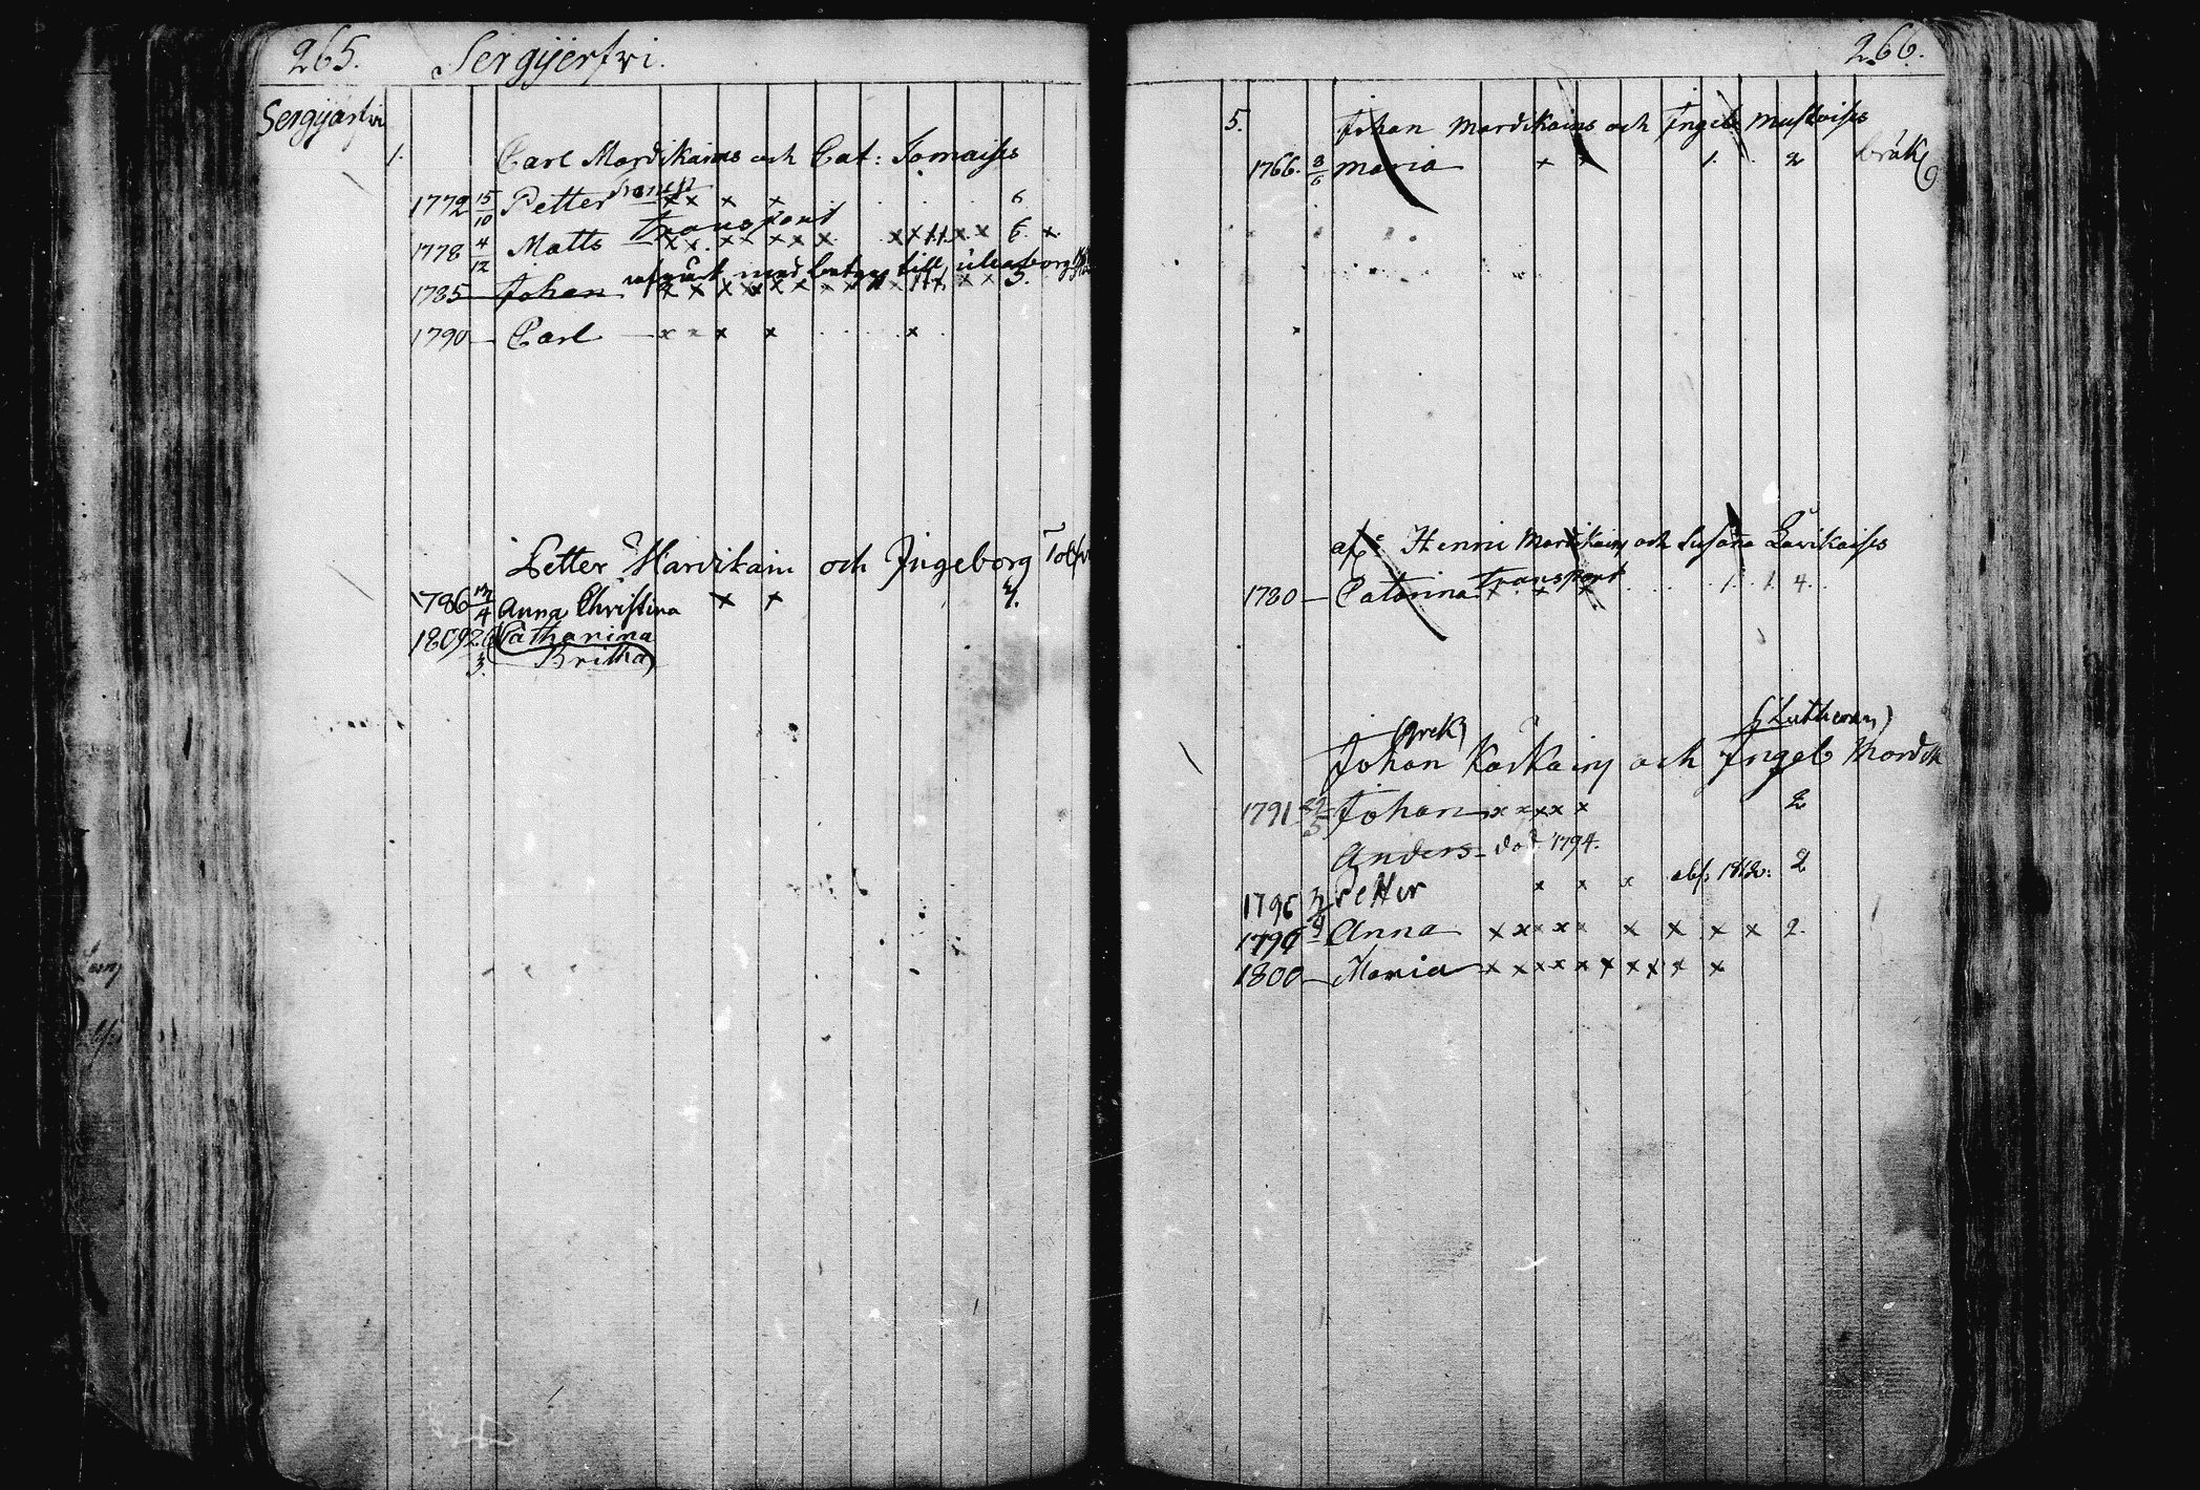 265. Sergijerfvi.
Sergijärfvi
1. Carl Mardikains och Cat: Tomaises
1772 15/10 Petter transp x x x x 6
1778 4/12 Matts transport x x x x x x x x x 6. x
utgått med betyg till uleaborg
1785 Johan x x x x x x x x x x x 3.
1790 — Carl — x x x x x
Petter Mardikain och Ingeborg
1786 Anna Christina x x
1809 Catharina
Britha
266.
5. Johan Mardikains och Ingeb Mustoises
1766. 8/6 Maria x x 1. 2 bräk
afl: Henric Mardikains och Susana Lavikaises
1780 — Catarina transport x x x 1. 1. 4.
(Grek) (Lutheran)
Johan Karkains och Ingeb Mardik
1791 Johan x x x x x 2
Anders — död 1794.
Petter x x x abs: 1812: 2
Anna x x x x x x x x x 2.
1800 — Maria x x x x x x x x x x